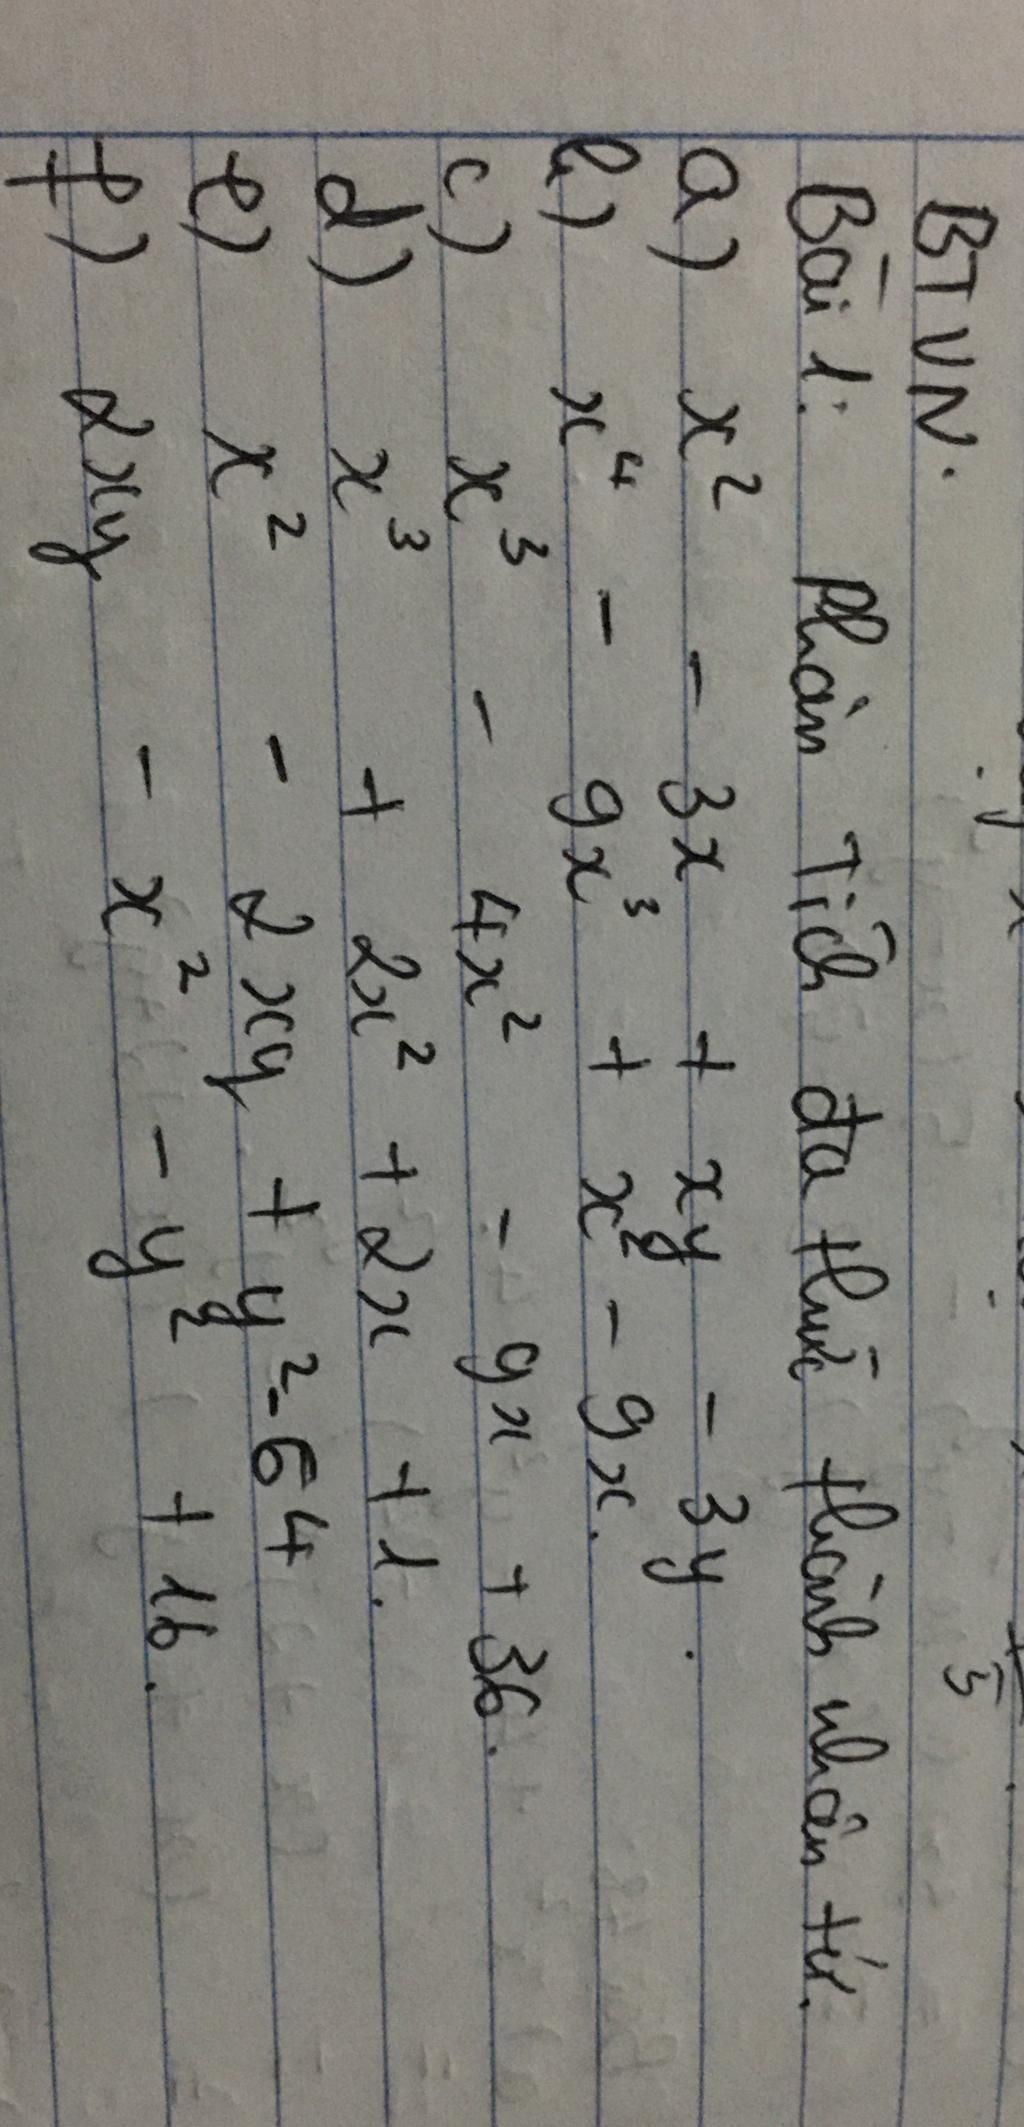 BTVN.
Bài 1: Phân Tích đa thức thành nhân tử.
a) x² - 3x + xy - 3y.
b) x⁴ - 9x³ + x² - 9x.
c) x³ - 4x² - 9x + 36.
d) x³ + 2x² + 2x + 1.
e) x² - 2xy + y² - 64
f) 2xy - x² - y² + 16.